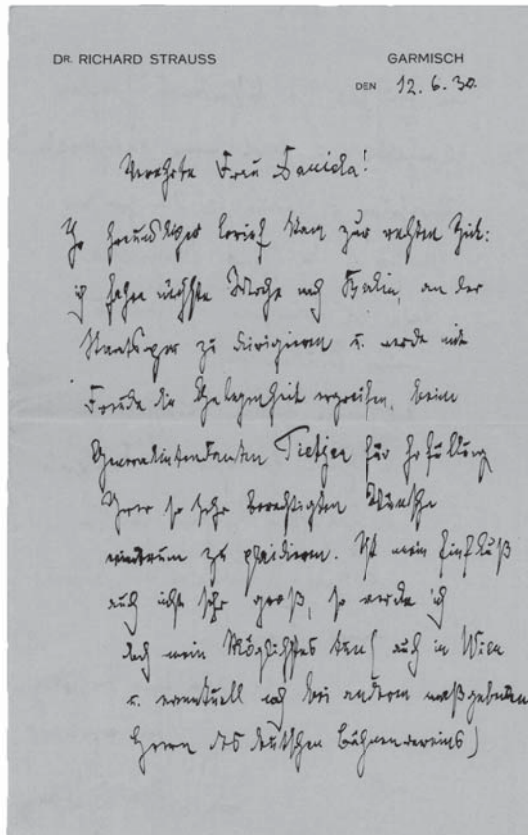 DR. RICHARD STRAUSS
GARMISCH
DEN 12. 6. 30.
Verehrte Frau Daniela!
Ihr freundlicher Brief kam zur rechten Zeit:
ich fahre nächste Woche nach Berlin, an der
Staatsoper zu dirigieren u. werde mit
Freude die Gelegenheit ergreifen, beim
Generalintendanten Tietjen für Erfüllung
Ihrer so sehr berechtigten Wünsche
zu plaidieren. Ist mein Einfluß
auch nicht sehr groß, so werde ich
doch mein Möglichstes tun (auch in Wien
u. eventuell noch bei anderen maßgebenden
Herren des deutschen Bühnenvereins)